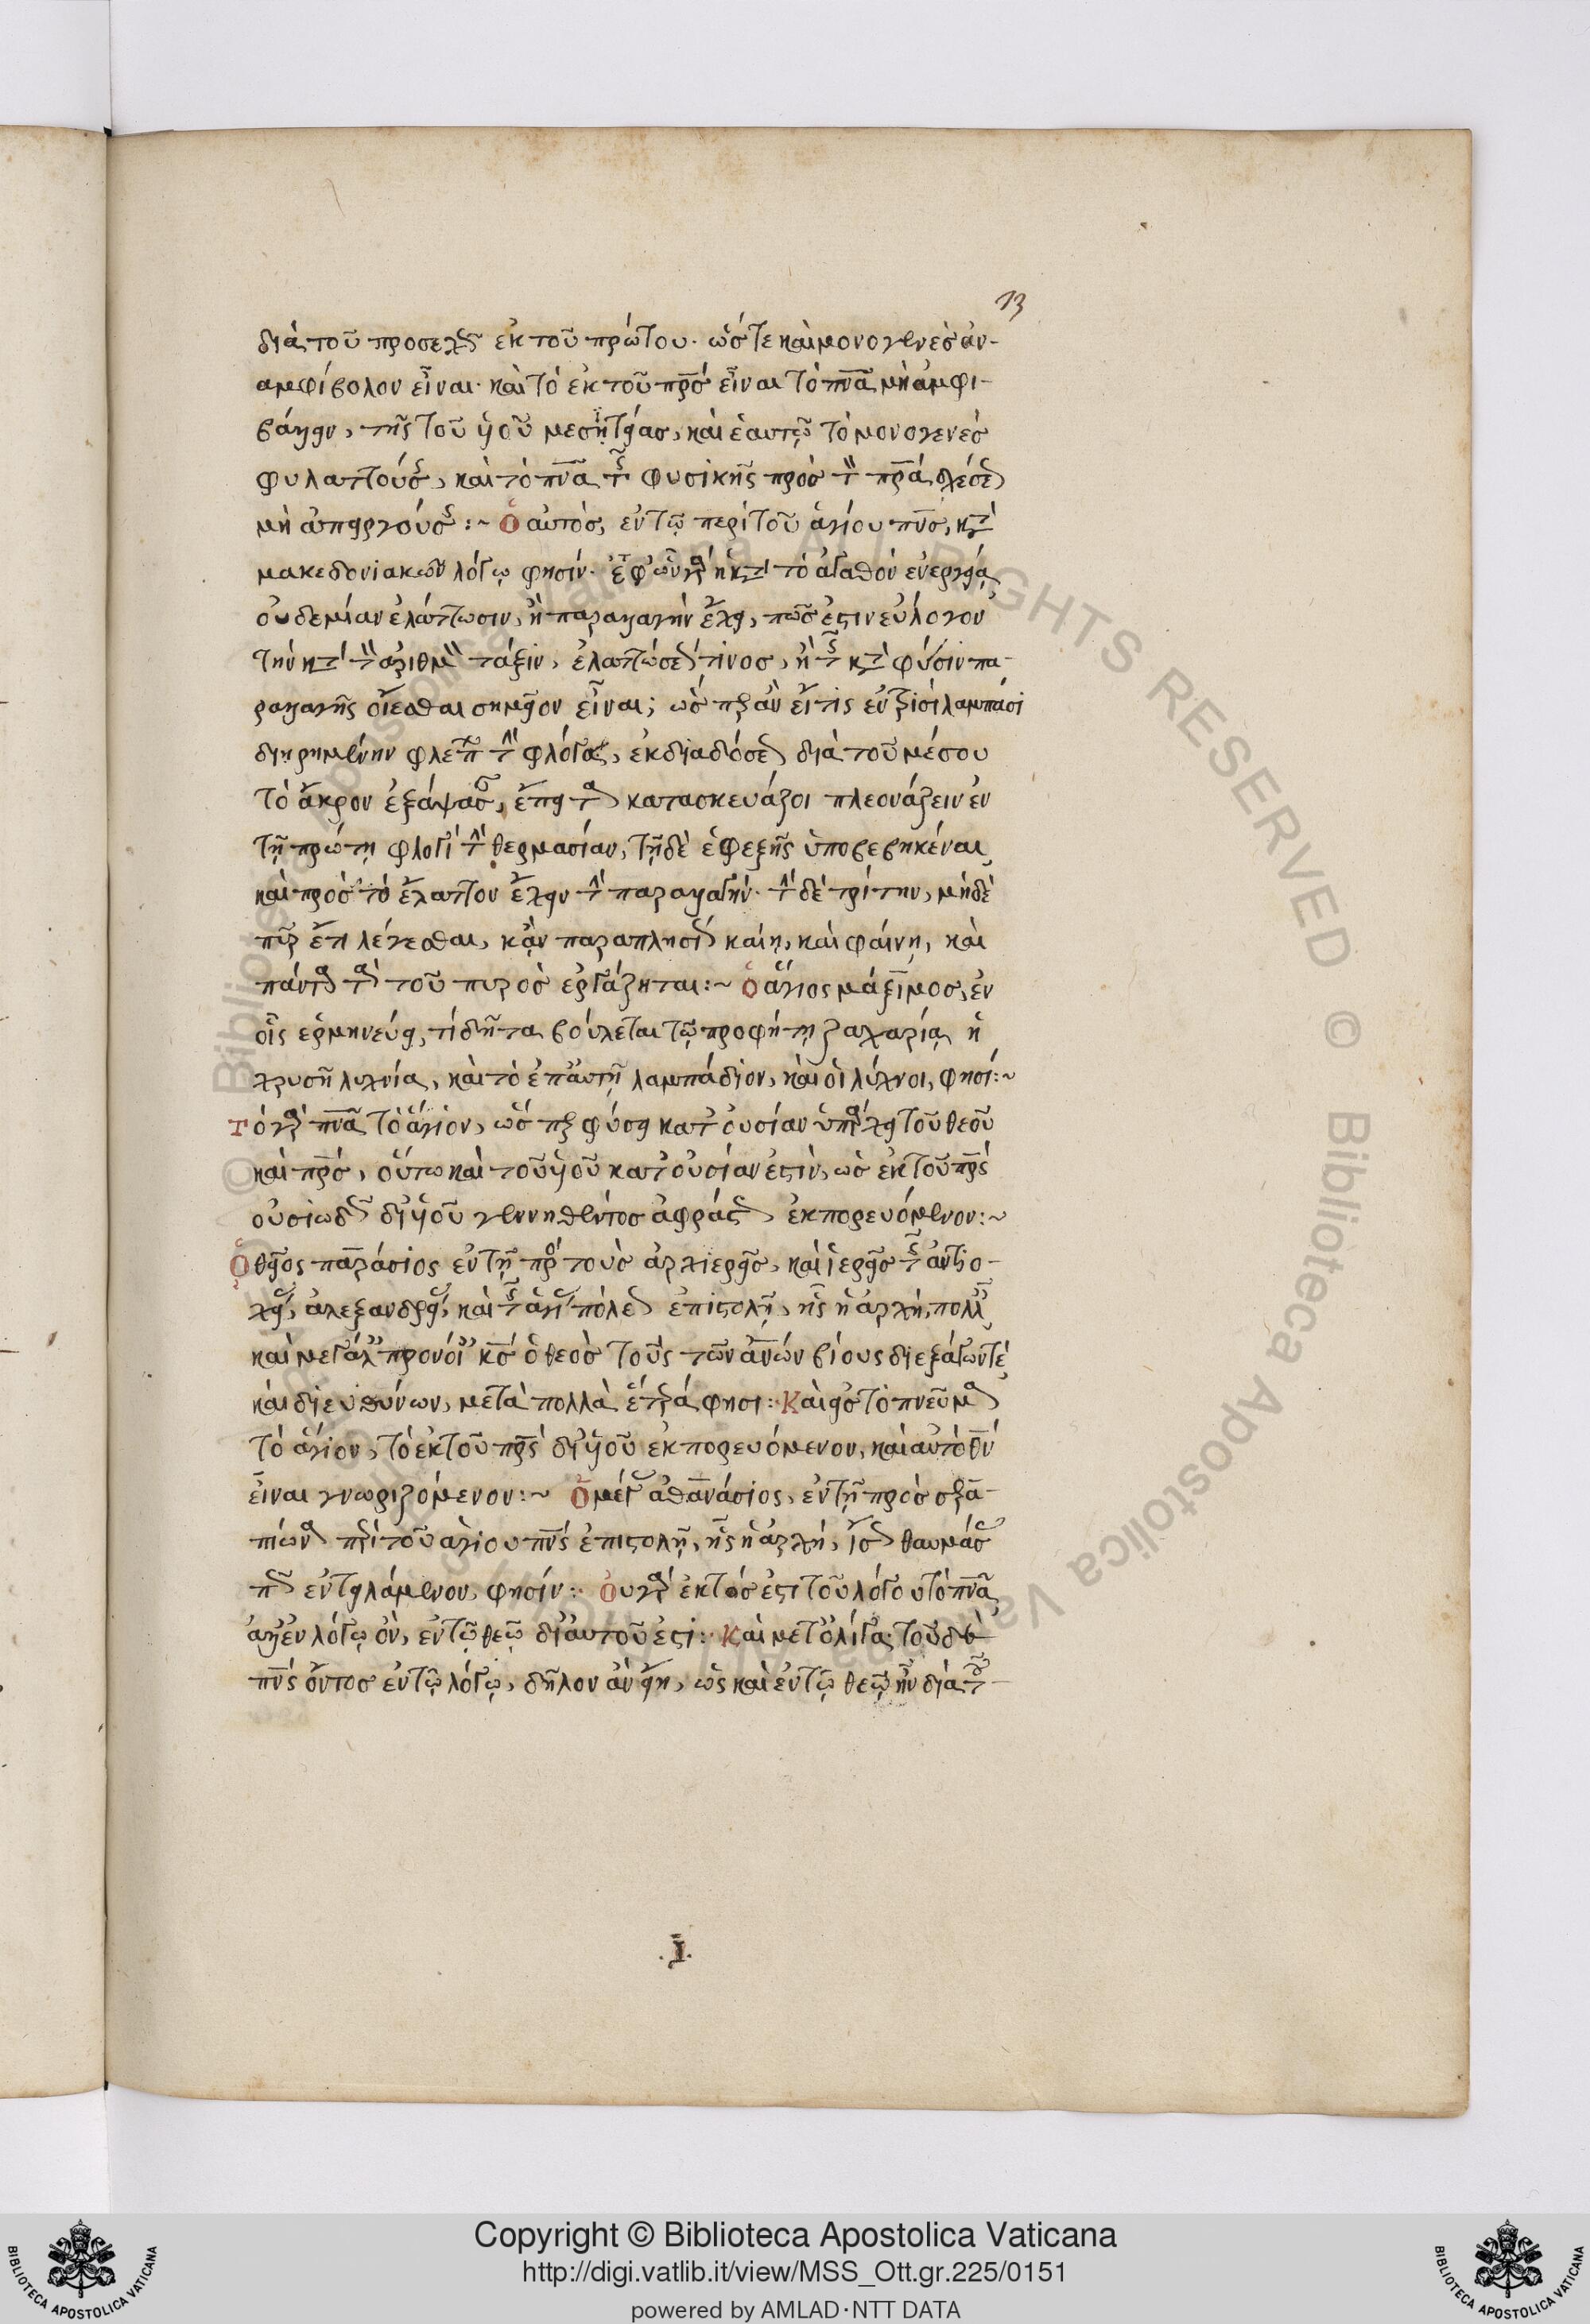 13
διὰ τοῦ προσεχῶς ἐκ τοῦ πρώτου. ὥστε καὶ μονογενὲς ἀν-
αμφίβολον εἶναι. καὶ τὸ ἐκ τοῦ πρσ εἶναι τὸ πνα μὴ ἀμφι-
βάλλειν, τῆς τοῦ υἱοῦ μεσιτείας, καὶ ἑαυτῷ τὸ μονογενὲς
φυλαττούσης, καὶ τὸ πνα τῆς φυσικῆς πρὸς τὸν πρα σχέσεως
μὴ ἀπειργούσης :~ Ὁ αὐτὸς, ἐν τῷ περὶ τοῦ ἁγίου πνσ, κατὰ
μακεδονιακῶν λόγῳ φησίν. ἐφ' ὧν γὰρ ἡ κατὰ τὸ ἀγαθὸν ἐνεργεία
οὐδεμίαν ἐλάττωσιν, ἢ παραλλαγὴν ἔχει, πῶς ἐστιν εὔλογον
τὴν κατὰ τὸν ἀριθμὸν τάξιν, ἐλαττώσεώς τινος, ἢ τῆς κατὰ φύσιν πα-
ραλλαγῆς οἴεσθαι σημεῖον εἶναι; ὥσπερ ἂν εἴ τις ἐν τρισὶ λαμπάσι
διῃρημένην φλεπ τὴν φλόγα, ἐκ διαδόσεως διὰ τοῦ μέσου
τὸ ἄκρον ἐξάψασ, ἔπειτα κατασκευάζοι πλεονάζειν ἐν
τῇ πρώτῃ φλογὶ τὴν θερμασίαν, τῇ δὲ ἐφεξῆς ὑποβεβηκέναι
καὶ πρὸς τὸ ἔλαττον ἔχειν τὴν παραλλαγήν. τὴν δὲ τρίτην, μηδὲ
πῦρ ἔτι λέγεσθαι, κἂν παραπλησίως καίῃ, καὶ φαίνῃ, καὶ
πάντα τὰ τοῦ πυρὸς ἐργάζηται :~ Ὁ ἅγιος μάξιμος, ἐν
οἷς ἑρμηνεύει, τί δῆτα βούλεται τῷ προφήτῃ ζαχαρίᾳ ἡ
χρυσῆ λυχνία, καὶ τὸ ἐπ' αὐτῇ λαμπάδιον, καὶ οἱ λύχνοι, φησί :~
Τὸ γὰρ πνα τὸ ἅγιον, ὥσπερ φύσει κατ' οὐσίαν ὑπάρχει τοῦ θεοῦ
καὶ πρσ, οὕτω καὶ τοῦ υἱοῦ κατ' οὐσίαν ἐστὶν, ὡς ἐκ τοῦ πρς
οὐσιωδῶς δι' υἱοῦ γεννηθέντος ἀφράστως ἐκπορευόμενον :~
Ὁ θεῖος ταράσιος ἐν τῇ πρὸς τοὺς ἀρχιερεῖς, καὶ ἱερεῖς τῆς ἀντιο-
χείας, ἀλεξανδρείας, καὶ τῆς ἁγίας πόλεως ἐπιστολῇ, ἧς ἡ ἀρχή, πολλῇ
καὶ μεγάλη προνοία κσ ὁ θεὸς τοὺς τῶν ανων βίους διεξάγων τε
καὶ διευθύνων, μετὰ πολλὰ ἕτερά φησι :· Καὶ εἰς τὸ πνεῦμα
τὸ ἅγιον, τὸ ἐκ τοῦ πρς δι' υἱοῦ ἐκπορευόμενον, καὶ αὐτὸ θν
εἶναι γνωριζόμενον :~ Ὁ μέγας ἀθανάσιος, ἐν τῇ πρὸς σερα-
πίωνα περὶ τοῦ ἁγίου πνς ἐπιστολῇ, ἧς ἡ ἀρχή, ἴσως θαυμάσ
πῶς ἐντειλάμενον, φησίν :· Οὐ γὰρ ἐκτός ἐστι τοῦ λόγου τὸ πνα
ἀλλ' ἐν λόγῳ ὂν, ἐν τῷ θεῷ δι' αὐτοῦ ἐστι :· Καὶ μετ' ὀλίγα· τοῦ δὲ
πνς ὄντος ἐν τῷ λόγῳ, δῆλον ἂν εἴη, ὡς καὶ ἐν τῷ θεῷ ἦν διὰ τοῦ
.Ι.
Copyright © Biblioteca Apostolica Vaticana
http://digi.vatlib.it/view/MSS_Ott.gr.225/0151
powered by AMLAD·NTT DATA